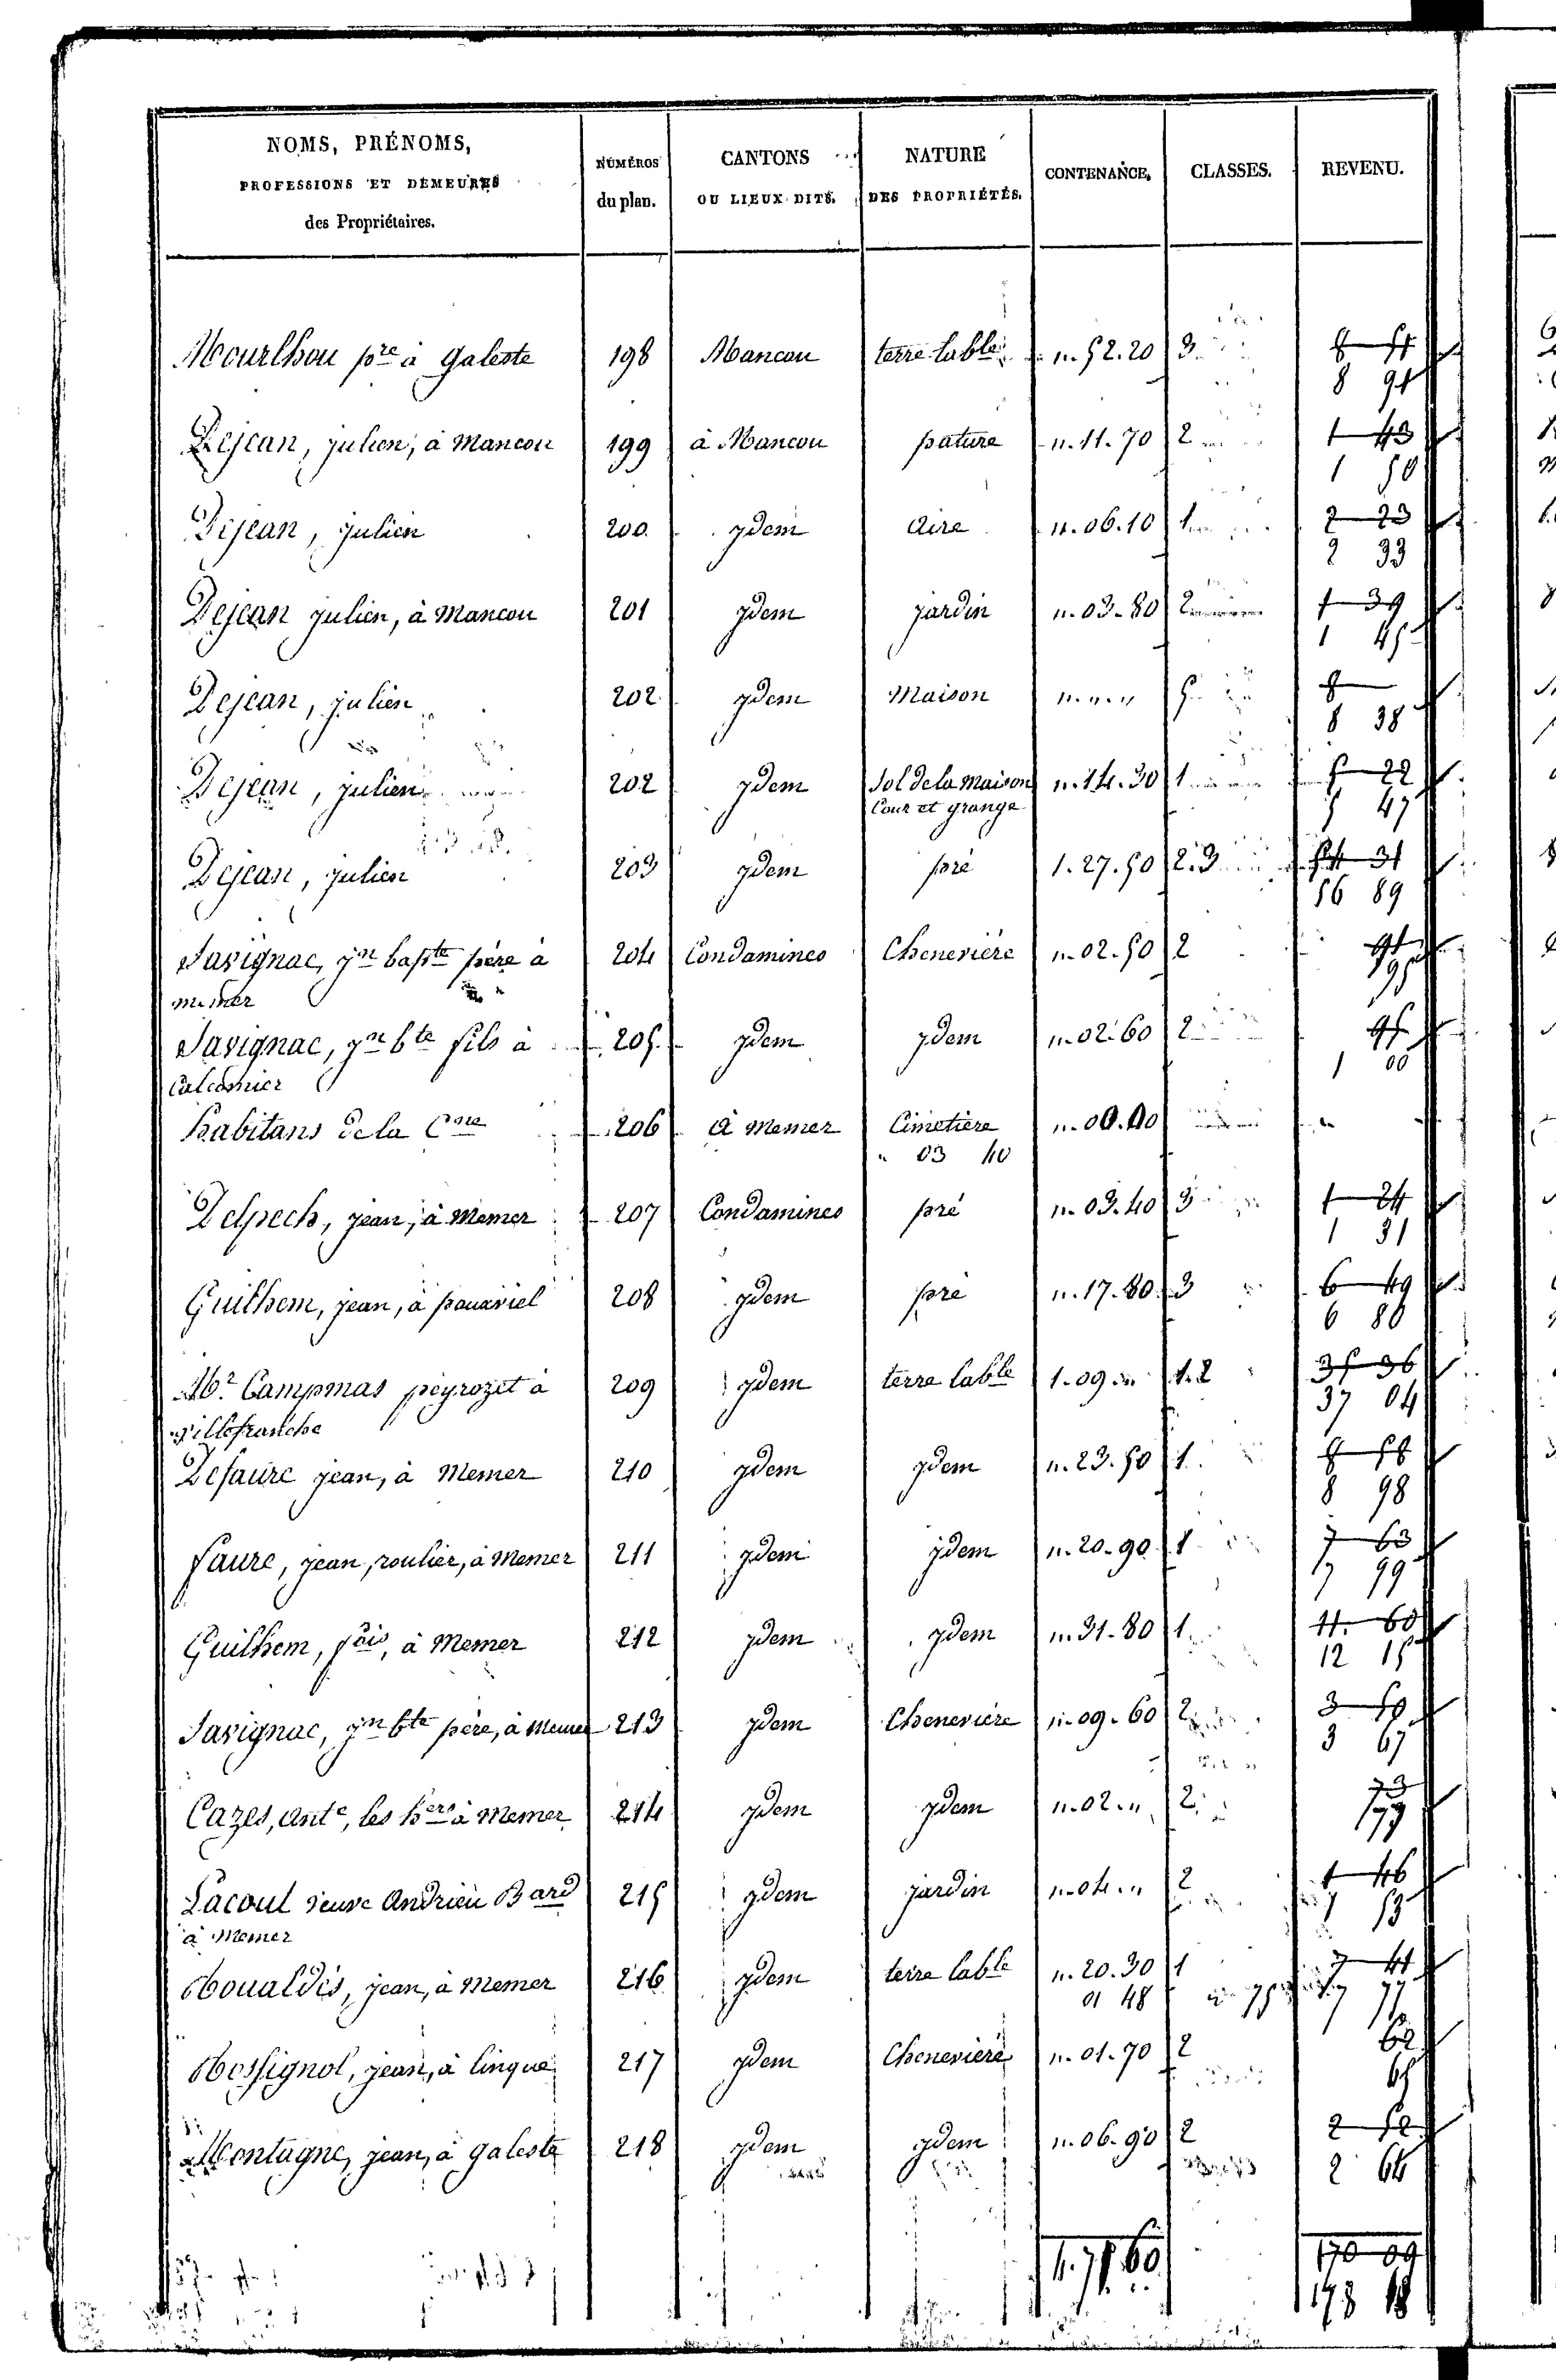 NOMS, PRÉNOMS, PROFESSIONS ET DEMEURES des Propriétaires. | NUMÉROS du plan. | CANTONS OU LIEUX DITS. | NATURE DES PROPRIÉTÉS. | CONTENANCE. | CLASSES. | REVENU.
Mourlhou pre à galeste 198 Mancou terre lable ". 52. 20 3
8 91
Dejean, julien, à Mancou 199 à Mancou pature ". 11. 70 2 1 43
1 50
Dejean, julien 200 ydem aire ". 06. 10 1 2 23
2 33
Dejean julien, à Mancou 201 ydem jardin ". 03. 80 2 1 39
1 45
Dejean, julien 202 ydem Maison ". ". " 5 8
8 38
Dejean, julien 202 ydem Sol de la maison ". 14. 30 1 5 22
Cour et grange 5 47
Dejean, julien 203 ydem pré 1. 27. 50 2. 3 54 31
56 89
Savignac, jn bapte père à 204 Condamines Chenevière ". 02. 50 2 91
memer 95
Savignac, jn bte fils à 205 ydem ydem ". 02. 60 2 95
Calcomier 1 00
habitans de la Cne 206 à Memer Cimetière
" 03 40
Delpech, jean, à Memer 207 Condamines pré ". 03. 40 3 1 24
1 31
Guilhem, jean, à pauariel 208 ydem pré ". 17. 80 3 6 49
6 80
Mr Campmas peyrozet à 209 ydem terre lable 1. 09. " 1. 2 35 36
villefranche 37 04
Defaure jean, à Memer 210 ydem ydem ". 23. 50 1 8 58
8 98
faure, jean, roulier, à Memer 211 ydem ydem ". 20. 90 1 7 63
7 99
Guilhem, fois, à Memer 212 ydem ydem ". 31. 80 1 11. 60
12 15
Savignac, jn bte père, à Memer 213 ydem Chenevière ". 09. 60 2 3 50
3 67
Cazes, ante, les hers à Memer 214 ydem ydem ". 02. " 2 73
77
Lacout veuve Andrieu Bard 215 ydem jardin ". 04. " 2 1 46
à Memer 1 53
Roualdès, jean, à Memer 216 ydem terre lable ". 20. 30 1 7 41
01 48 7 77
Rossignol, jean, à linque 217 ydem Chenevière ". 01. 70 2 62
65
Montagne, jean, à galeste 218 ydem ydem ". 06. 90 2 2 52
2 64
4. 75 60 170 09
178 18